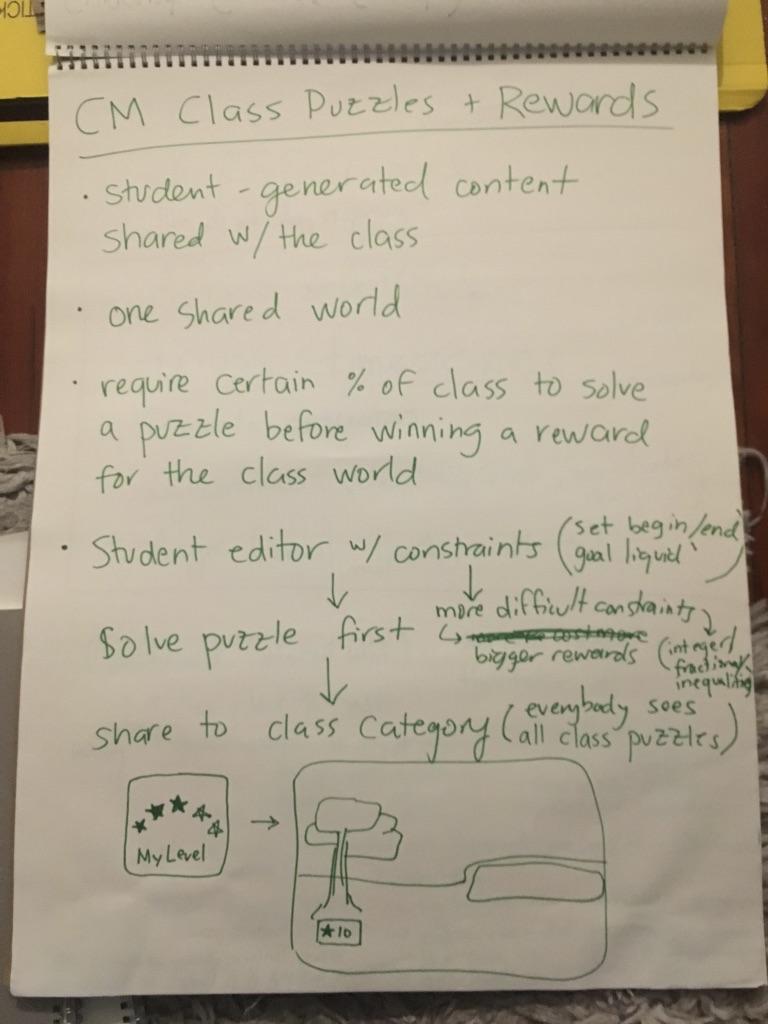 CM Class Puzzles + Rewards
· student - generated content
shared w/ the class
· one shared world
· require certain % of class to solve
a puzzle before winning a reward
for the class world
· Student editor w/ constraints (set begin/end
goal liquid)
↓ ↓
Solve puzzle first
more difficult constraints
↳ bigger rewards
(integer/
fractional/
inequalities
↓
share to class category (everybody sees
all class puzzles)
My Level
→
★10